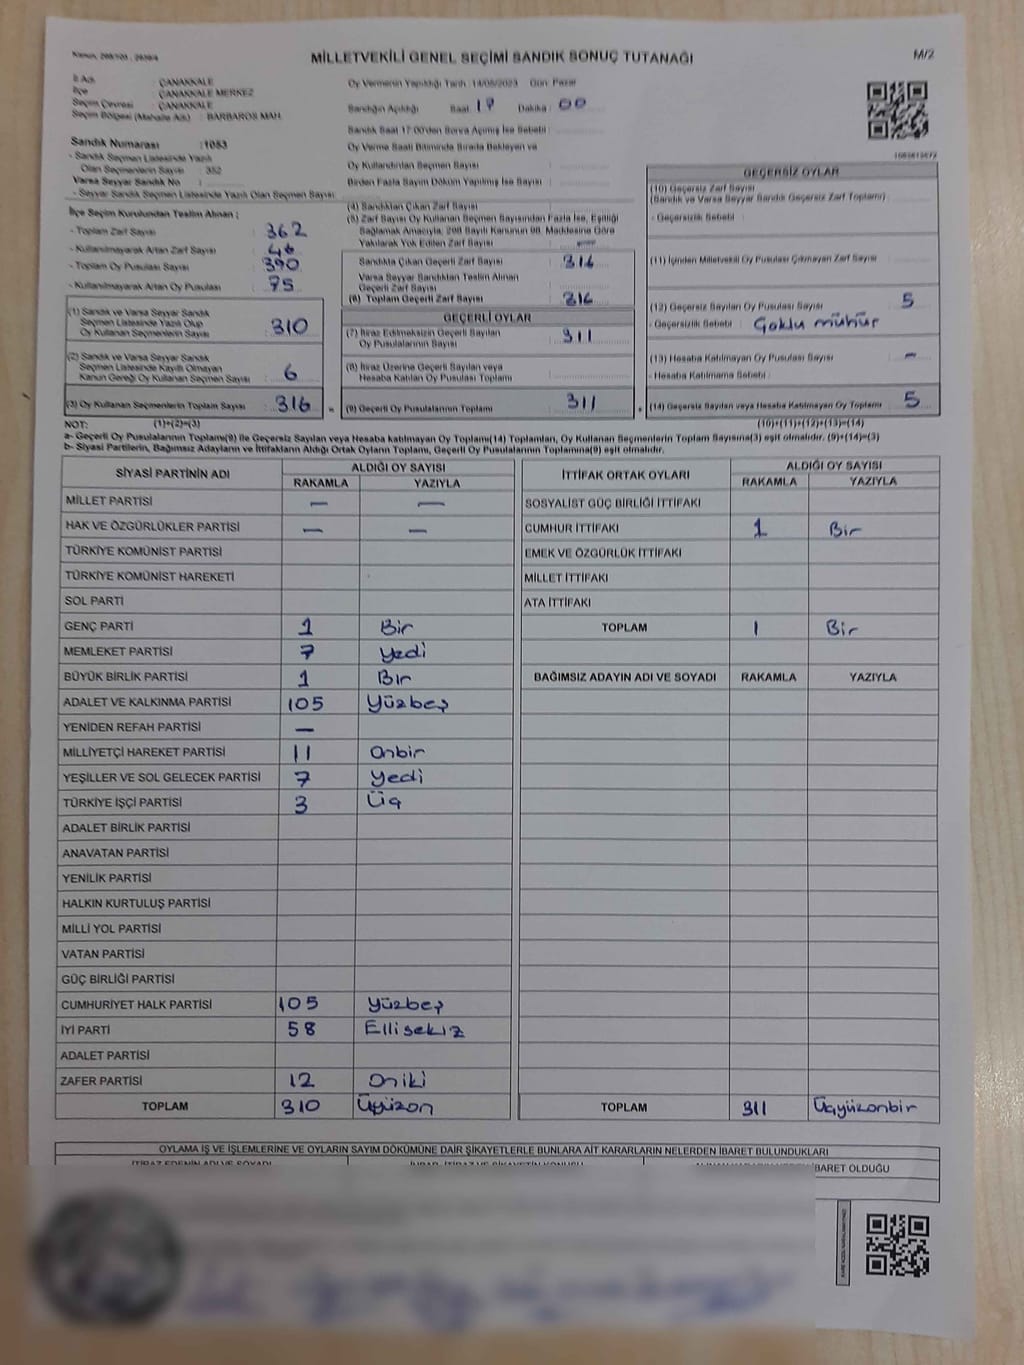 MİLLETVEKİLİ GENEL SEÇİMİ SANDIK SONUÇ TUTANAĞI
M/2
İl Adı : ÇANAKKALE
İlçe : ÇANAKKALE MERKEZ
Seçim Çevresi : ÇANAKKALE
Seçim Bölgesi (Mahalle Adı) : BARBAROS MAH.
Sandık Numarası : 1053
- Sandık Seçmen Listesinde Yazılı Olan Seçmenlerin Sayısı : 352
Varsa Seyyar Sandık No :
- Seyyar Sandık Seçmen Listesinde Yazılı Olan Seçmen Sayısı :
Oy Vermenin Yapıldığı Tarih : 14/05/2023 Gün : Pazar
Sandığın Açıldığı Saat : 17 Dakika : 00
Sandık Saat 17:00'den Sonra Açılmış İse Sebebi :
Oy Verme Saati Bitiminde Sırada Bekleyen ve
Oy Kullandırılan Seçmen Sayısı :
Birden Fazla Sayım Döküm Yapılmış İse Sayısı :
İlçe Seçim Kurulundan Teslim Alınan ;
- Toplam Zarf Sayısı : 362
- Kullanılmayarak Artan Zarf Sayısı : 46
- Toplam Oy Pusulası Sayısı : 390
- Kullanılmayarak Artan Oy Pusulası : 75
(1) Sandık ve Varsa Seyyar Sandık
Seçmen Listesinde Yazılı Olup
Oy Kullanan Seçmenlerin Sayısı : 310
(2) Sandık ve Varsa Seyyar Sandık
Seçmen Listesinde Kayıtlı Olmayan
Kanun Gereği Oy Kullanan Seçmen Sayısı : 6
(3) Oy Kullanan Seçmenlerin Toplam Sayısı : 316
(4) Sandıktan Çıkan Zarf Sayısı :
(5) Zarf Sayısı Oy Kullanan Seçmen Sayısından Fazla İse, Eşitliği
Sağlamak Amacıyla, 298 Sayılı Kanunun 98. Maddesine Göre
Yakılarak Yok Edilen Zarf Sayısı : —
Sandıkta Çıkan Geçerli Zarf Sayısı : 316
Varsa Seyyar Sandıktan Teslim Alınan
Geçerli Zarf Sayısı :
(6) Toplam Geçerli Zarf Sayısı : 316
GEÇERLİ OYLAR
(7) İtiraz Edilmeksizin Geçerli Sayılan
Oy Pusulalarının Sayısı : 311
(8) İtiraz Üzerine Geçerli Sayılan veya
Hesaba Katılan Oy Pusulası Toplamı :
(9) Geçerli Oy Pusulalarının Toplamı : 311
GEÇERSİZ OYLAR
(10) Geçersiz Zarf Sayısı
(Sandık ve Varsa Seyyar Sandık Geçersiz Zarf Toplamı) :
- Geçersizlik Sebebi :
(11) İçinden Milletvekili Oy Pusulası Çıkmayan Zarf Sayısı :
(12) Geçersiz Sayılan Oy Pusulası Sayısı : 5
- Geçersizlik Sebebi : Çoklu mühür
(13) Hesaba Katılmayan Oy Pusulası Sayısı : —
- Hesaba Katılmama Sebebi :
(14) Geçersiz Sayılan veya Hesaba Katılmayan Oy Toplamı : 5
NOT: (1)+(2)=(3) (10)+(11)+(12)+(13)=(14)
a- Geçerli Oy Pusulalarının Toplamı(9) ile Geçersiz Sayılan veya Hesaba katılmayan Oy Toplamı(14) Toplamları, Oy Kullanan Seçmenlerin Toplam Sayısına(3) eşit olmalıdır. (9)+(14)=(3)
b- Siyasi Partilerin, Bağımsız Adayların ve İttifakların Aldığı Ortak Oyların Toplamı, Geçerli Oy Pusulalarının Toplamına(9) eşit olmalıdır.
SİYASİ PARTİNİN ADI ALDIĞI OY SAYISI RAKAMLA YAZIYLA
MİLLET PARTİSİ — —
HAK VE ÖZGÜRLÜKLER PARTİSİ — —
TÜRKİYE KOMÜNİST PARTİSİ
TÜRKİYE KOMÜNİST HAREKETİ
SOL PARTİ
GENÇ PARTİ 1 Bir
MEMLEKET PARTİSİ 7 Yedi
BÜYÜK BİRLİK PARTİSİ 1 Bır
ADALET VE KALKINMA PARTİSİ 105 Yüzbeş
YENİDEN REFAH PARTİSİ —
MİLLİYETÇİ HAREKET PARTİSİ 11 Onbir
YEŞİLLER VE SOL GELECEK PARTİSİ 7 Yedi
TÜRKİYE İŞÇİ PARTİSİ 3 Üç
ADALET BİRLİK PARTİSİ
ANAVATAN PARTİSİ
YENİLİK PARTİSİ
HALKIN KURTULUŞ PARTİSİ
MİLLİ YOL PARTİSİ
VATAN PARTİSİ
GÜÇ BİRLİĞİ PARTİSİ
CUMHURİYET HALK PARTİSİ 105 Yüzbeş
İYİ PARTİ 58 Ellisekiz
ADALET PARTİSİ
ZAFER PARTİSİ 12 Oniki
TOPLAM 310 Üçyüzon
İTTİFAK ORTAK OYLARI ALDIĞI OY SAYISI RAKAMLA YAZIYLA
SOSYALİST GÜÇ BİRLİĞİ İTTİFAKI
CUMHUR İTTİFAKI 1 Bir
EMEK VE ÖZGÜRLÜK İTTİFAKI
MİLLET İTTİFAKI
ATA İTTİFAKI
TOPLAM 1 Bir
BAĞIMSIZ ADAYIN ADI VE SOYADI RAKAMLA YAZIYLA
TOPLAM 311 Üçyüzonbir
OYLAMA İŞ VE İŞLEMLERİNE VE OYLARIN SAYIM DÖKÜMÜNE DAİR ŞİKAYETLERLE BUNLARA AİT KARARLARIN NELERDEN İBARET BULUNDUKLARI
İBARET OLDUĞU